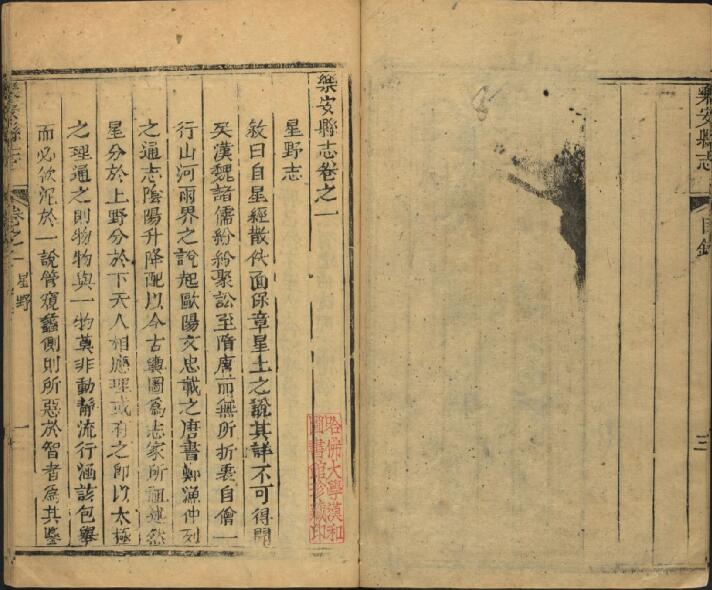 樂安縣志
目錄
三
8
樂安縣志卷之一
星野志
敘曰自星經散佚面保章星土之說其詳不可得聞
矣漢魏諸儒紛紛聚訟至隋唐而無所折衷自僧一
行山河兩界之說起歐陽文忠載之唐書鄭漁仲列
之通志陰陽升降配以今古輿圖爲志家所祖述然
星分於上野分於下天人相應理或有之即以太極
之理通之則物物與一物莫非動靜流行涵該包舉
而必欲泥於一說管窺蠡側則所惡於智者爲其鑿
樂安縣志
卷之一
星野
一
哈佛大學漢和
圖書館珍藏印